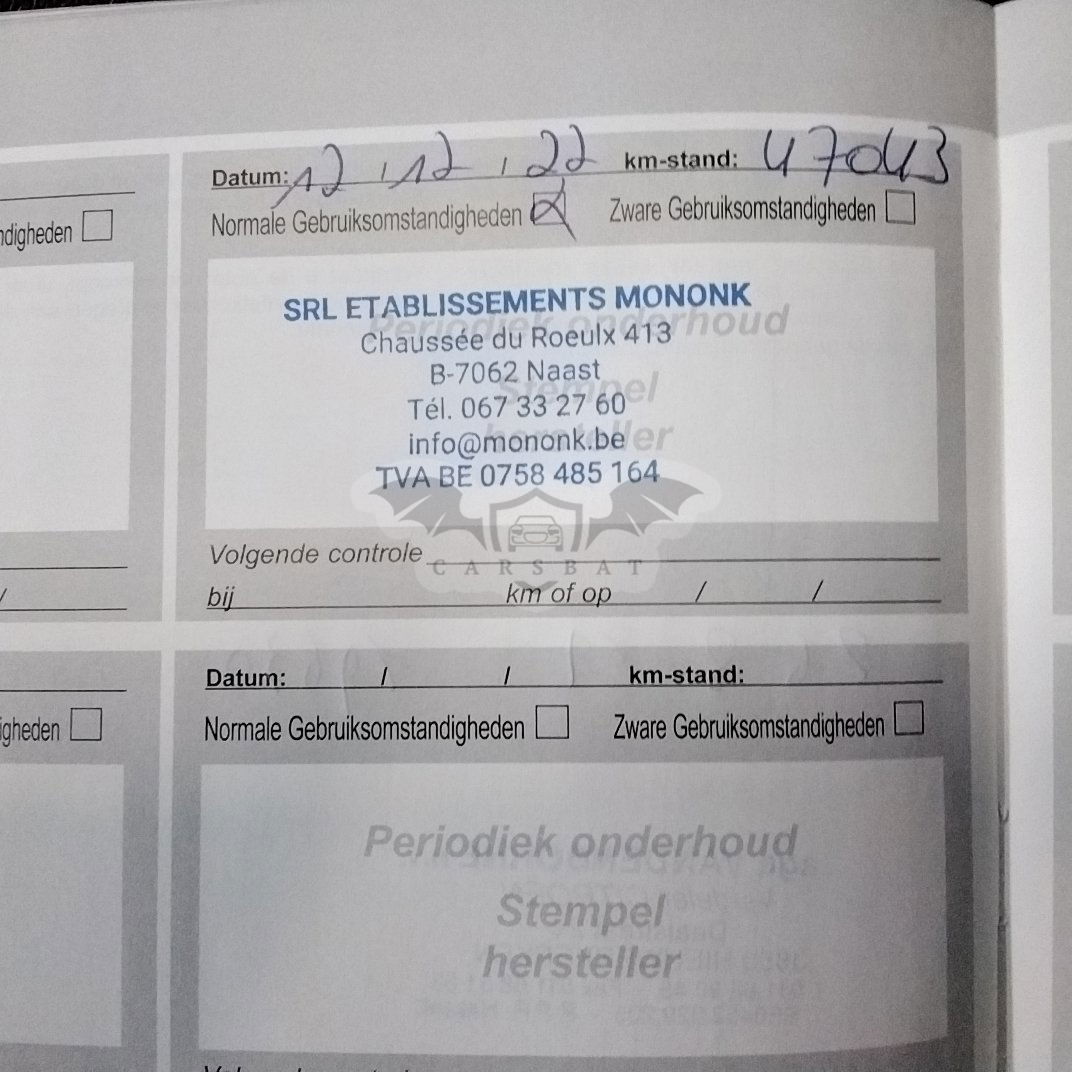 Datum: 12 / 12 / 22 km-stand: 47043
Normale Gebruiksomstandigheden Zware Gebruiksomstandigheden
ndigheden
SRL ETABLISSEMENTS MONONK
Periodiek onderhoud
Chaussée du Roeulx 413
B-7062 Naast
Stempel
Tél. 067 33 27 60
hersteller
info@mononk.be
TVA BE 0758 485 164
CARSBAT
Volgende controle
bij km of op / /
/
Datum: / / km-stand:
Normale Gebruiksomstandigheden Zware Gebruiksomstandigheden
igheden
Periodiek onderhoud
Stempel
hersteller